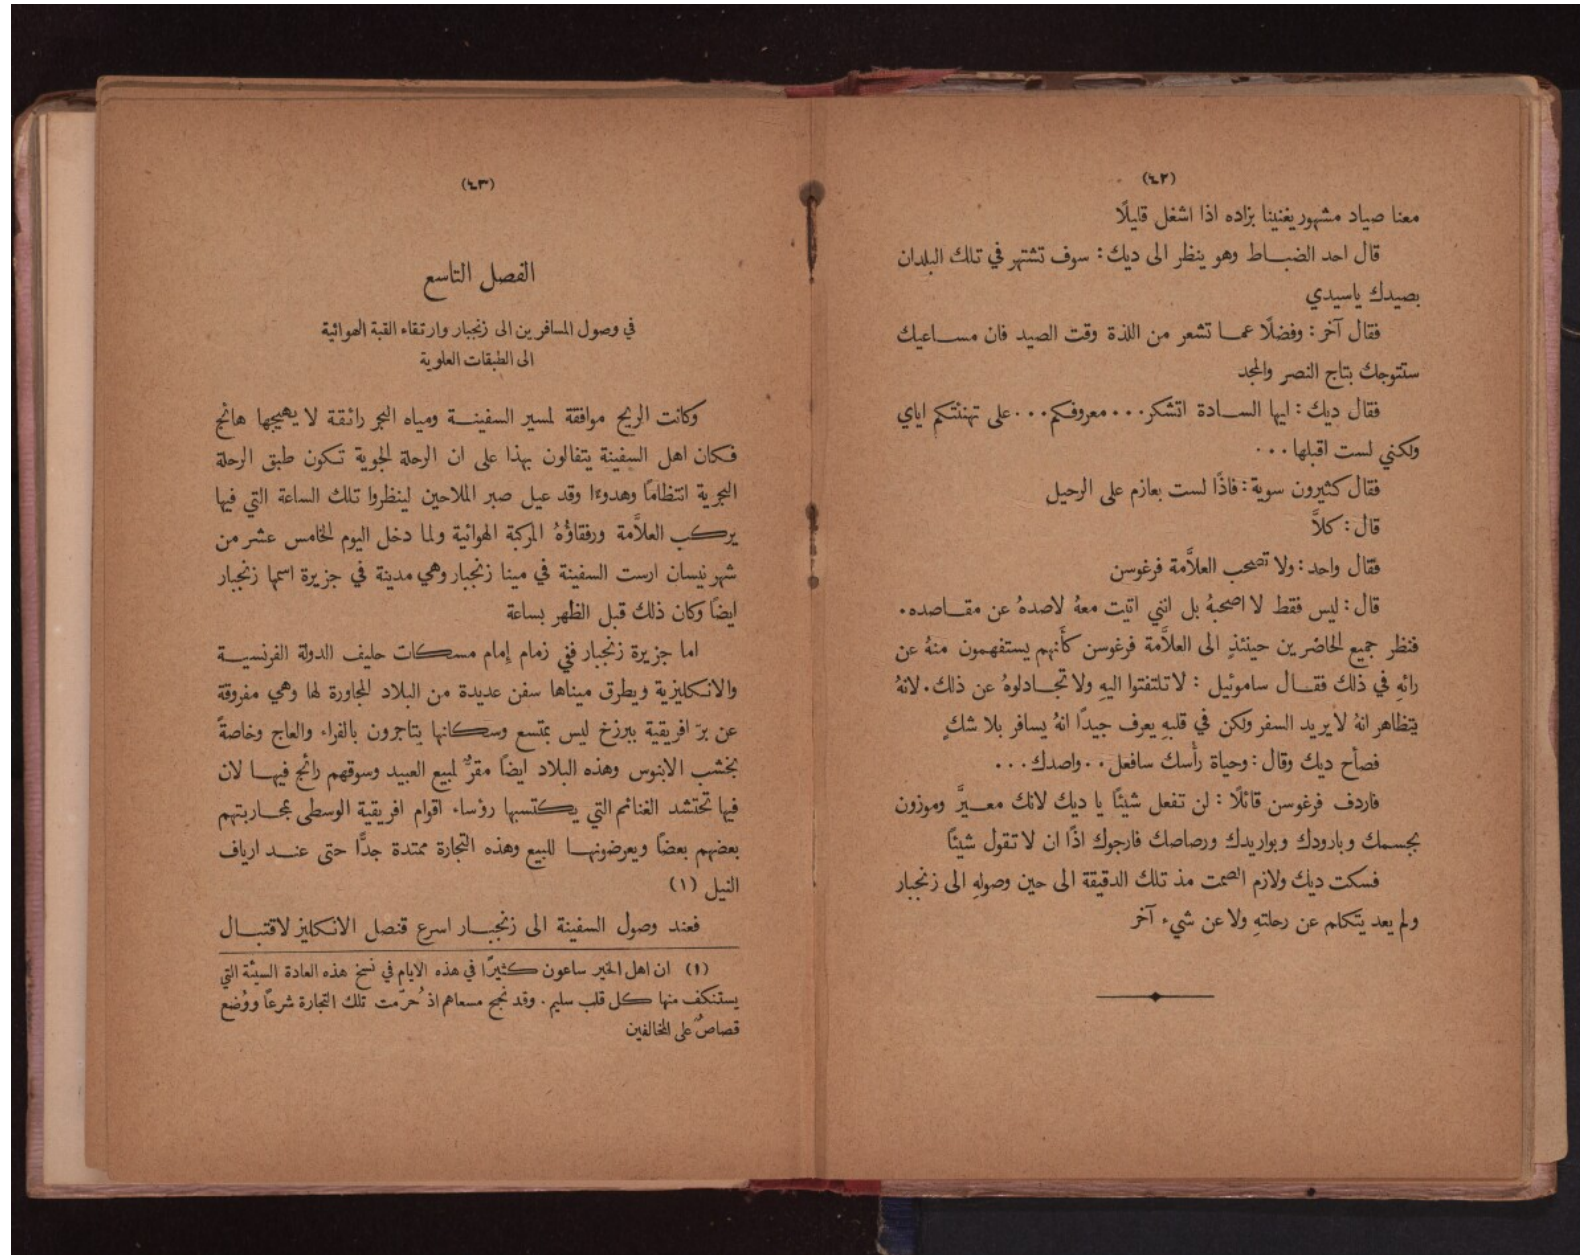 (٤٢)
معنا صياد مشهور يغنينا بزاده اذا اشغل قليلًا
قال احد الضباط وهو ينظر الى ديك : سوف تشتهر في تلك البلدان
بصيدك ياسيدي
فقال آخر : وفضلًا عما تشعر من اللذة وقت الصيد فان مساعيك
ستتوجك بتاج النصر والمجد
فقال ديك : ايها السادة اتشكر ... معروفكم ... على تهنئتكم اياي
ولكني لست اقبلها ...
فقال كثيرون سوية : فاذًا لست بعازم على الرحيل
قال : كلاَّ
فقال واحد : ولا تصحب العلاَّمة فرغوسن
قال : ليس فقط لا اصحبهُ بل انني اتيت معهُ لاصدهُ عن مقاصده .
فنظر جميع الحاضرين حينئذٍ الى العلاَّمة فرغوسن كأنهم يستفهمون منهُ عن
رائهِ في ذلك فقال ساموئيل : لا تلتفتوا اليهِ ولا تجادلوهُ عن ذلك . لانهُ
يتظاهر انهُ لا يريد السفر ولكن في قلبهِ يعرف جيدًا انهُ يسافر بلا شكٍ
فصاح ديك وقال : وحياة رأسك سافعل .. واصدك ...
فاردف فرغوسن قائلًا : لن تفعل شيئًا يا ديك لانك معيَّر وموزون
بجسمك وبارودك وبواريدك ورصاصك فارجوك اذًا ان لا تقول شيئًا
فسكت ديك ولازم الصمت مذ تلك الدقيقة الى حين وصولهِ الى زنجبار
ولم يعد يتكلم عن رحلتهِ ولا عن شيء آخر
(٤٣)
الفصل التاسع
في وصول المسافرين الى زنجبار وارتقاء القبة الهوائية
الى الطبقات العلوية
وكانت الريح موافقة لمسير السفينة ومياه البحر رائقة لا يهيجها هائج
فكان اهل السفينة يتفالون بهذا على ان الرحلة الجوية تكون طبق الرحلة
البحرية انتظامًا وهدوءًا وقد عيل صبر الملاحين لينظروا تلك الساعة التي فيها
يركب العلاَّمة ورفقاؤُهُ المركبة الهوائية ولما دخل اليوم الخامس عشر من
شهر نيسان ارست السفينة في مينا زنجبار وهي مدينة في جزيرة اسمها زنجبار
ايضًا وكان ذلك قبل الظهر بساعة
اما جزيرة زنجبار فني زمام إمام مسكات حليف الدولة الفرنسية
والانكليزية ويطرق ميناها سفن عديدة من البلاد المجاورة لها وهي مفروقة
عن برّ افريقية ببرزخ ليس بمتسع وسكانها يتاجرون بالفراء والعاج وخاصةً
بخشب الابنوس وهذه البلاد ايضًا مقرٌّ لمبيع العبيد وسوقهم رائج فيها لان
فيها تحتشد الغنائم التي يكتسبها رؤساء اقوام افريقية الوسطى بمحاربتهم
بعضهم بعضًا ويعرضونها للبيع وهذه التجارة ممتدة جدًّا حتى عند ارياف
النيل (١)
فعند وصول السفينة الى زنجبار اسرع قنصل الانكليز لاقتبال
(١) ان اهل الخير ساعون كثيرًا في هذه الايام في نسخ هذه العادة السيئة التي
يستنكف منها كل قلب سليم . وقد نجح مسعاهم اذ حُرّمت تلك التجارة شرعًا ووُضع
قصاصٌ على المخالفين